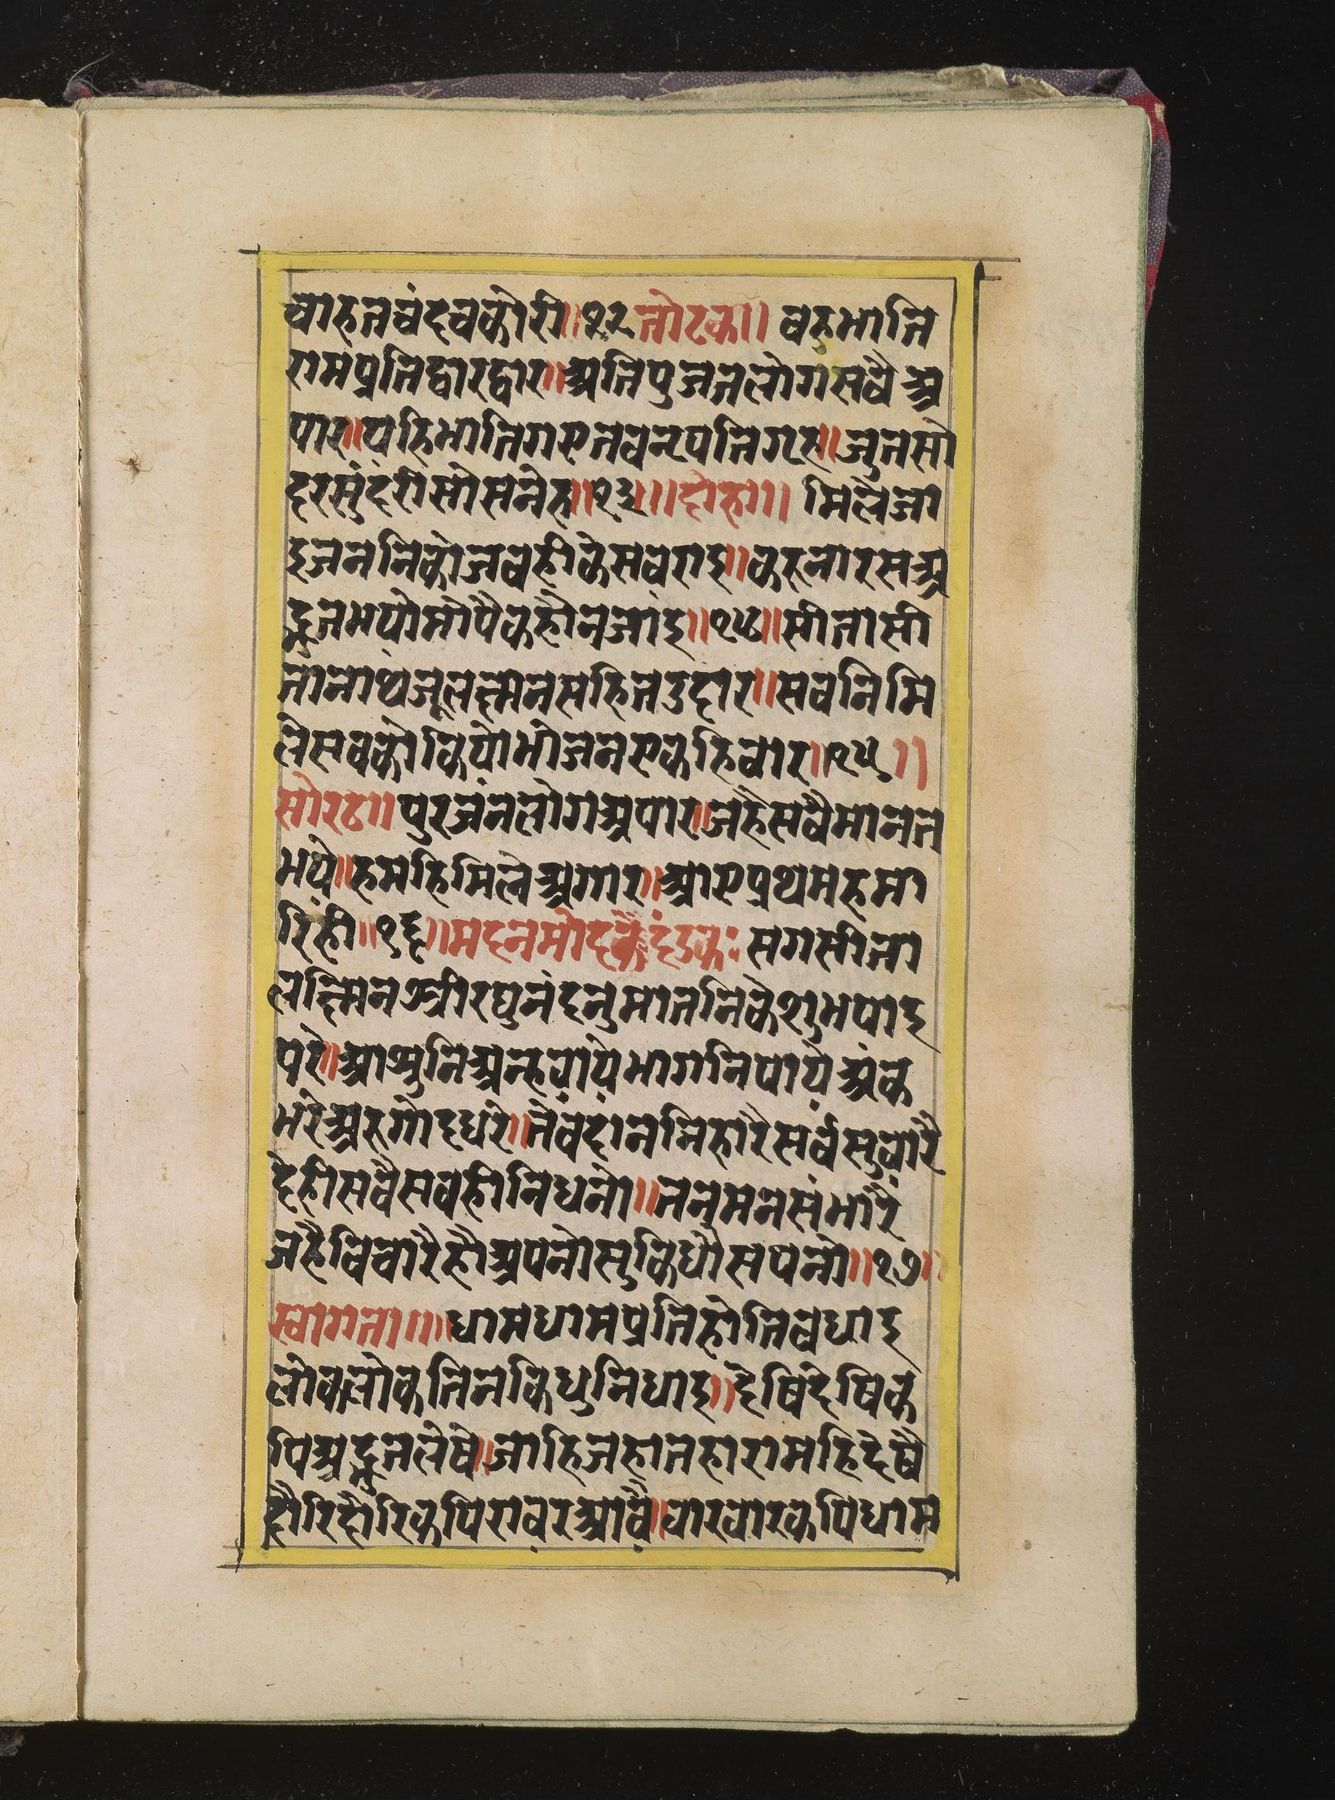 चाहतचंदचकोरी॥१२तोटका॥ वहुभाति
रामप्रतिद्वारद्वार॥अतिपुजतलोगसवैअ
पार॥यहिभातिगएतवनृपतिगेह॥जुतसो
दरसुंदरीसोसनेह॥१३॥॥दोहा॥ मिलेजा
इजननिकोजवहीकेसवराइ॥करूनारसअ
द्भुतभयोमोपैकहौनजाइ॥१४॥सीतासी
तानाथजूलछमनसहितउदार॥सवनिमि
लेसवकोकियोभोजनएकहिवार॥१५॥
सोरठा॥पुरजनलोगअपार॥जहैसवैमानत
भये॥हमहिमिलेअगार॥आएप्रथमहमा
रिंही॥१६॥मदनमोदकदंडक: सगसीता
लछिमनश्रीरघुनंदनुमातनिकेशुभपाइ
परे॥आश्रुनिअन्हवायेभागनिपायेअंक
भरेअरुगोदधरे॥तेवंदाननिहारैसर्वसुवारै
देहीसवैसवहीनिधनो॥तनमनसंभारै
जहैविचारैहौअपनोसुकिधौसपनो॥१७॥
स्वागता॥॥धामधामप्रतिहोतिवधाइ
लोकलोकतिनकिधुनिधाइ॥देषिदेषिक
पिअद्भुतलेषे॥जाहिजहातहारामहिदेषै
दौरिदौरिकपिरावरआवै॥वारवारकपिधाम